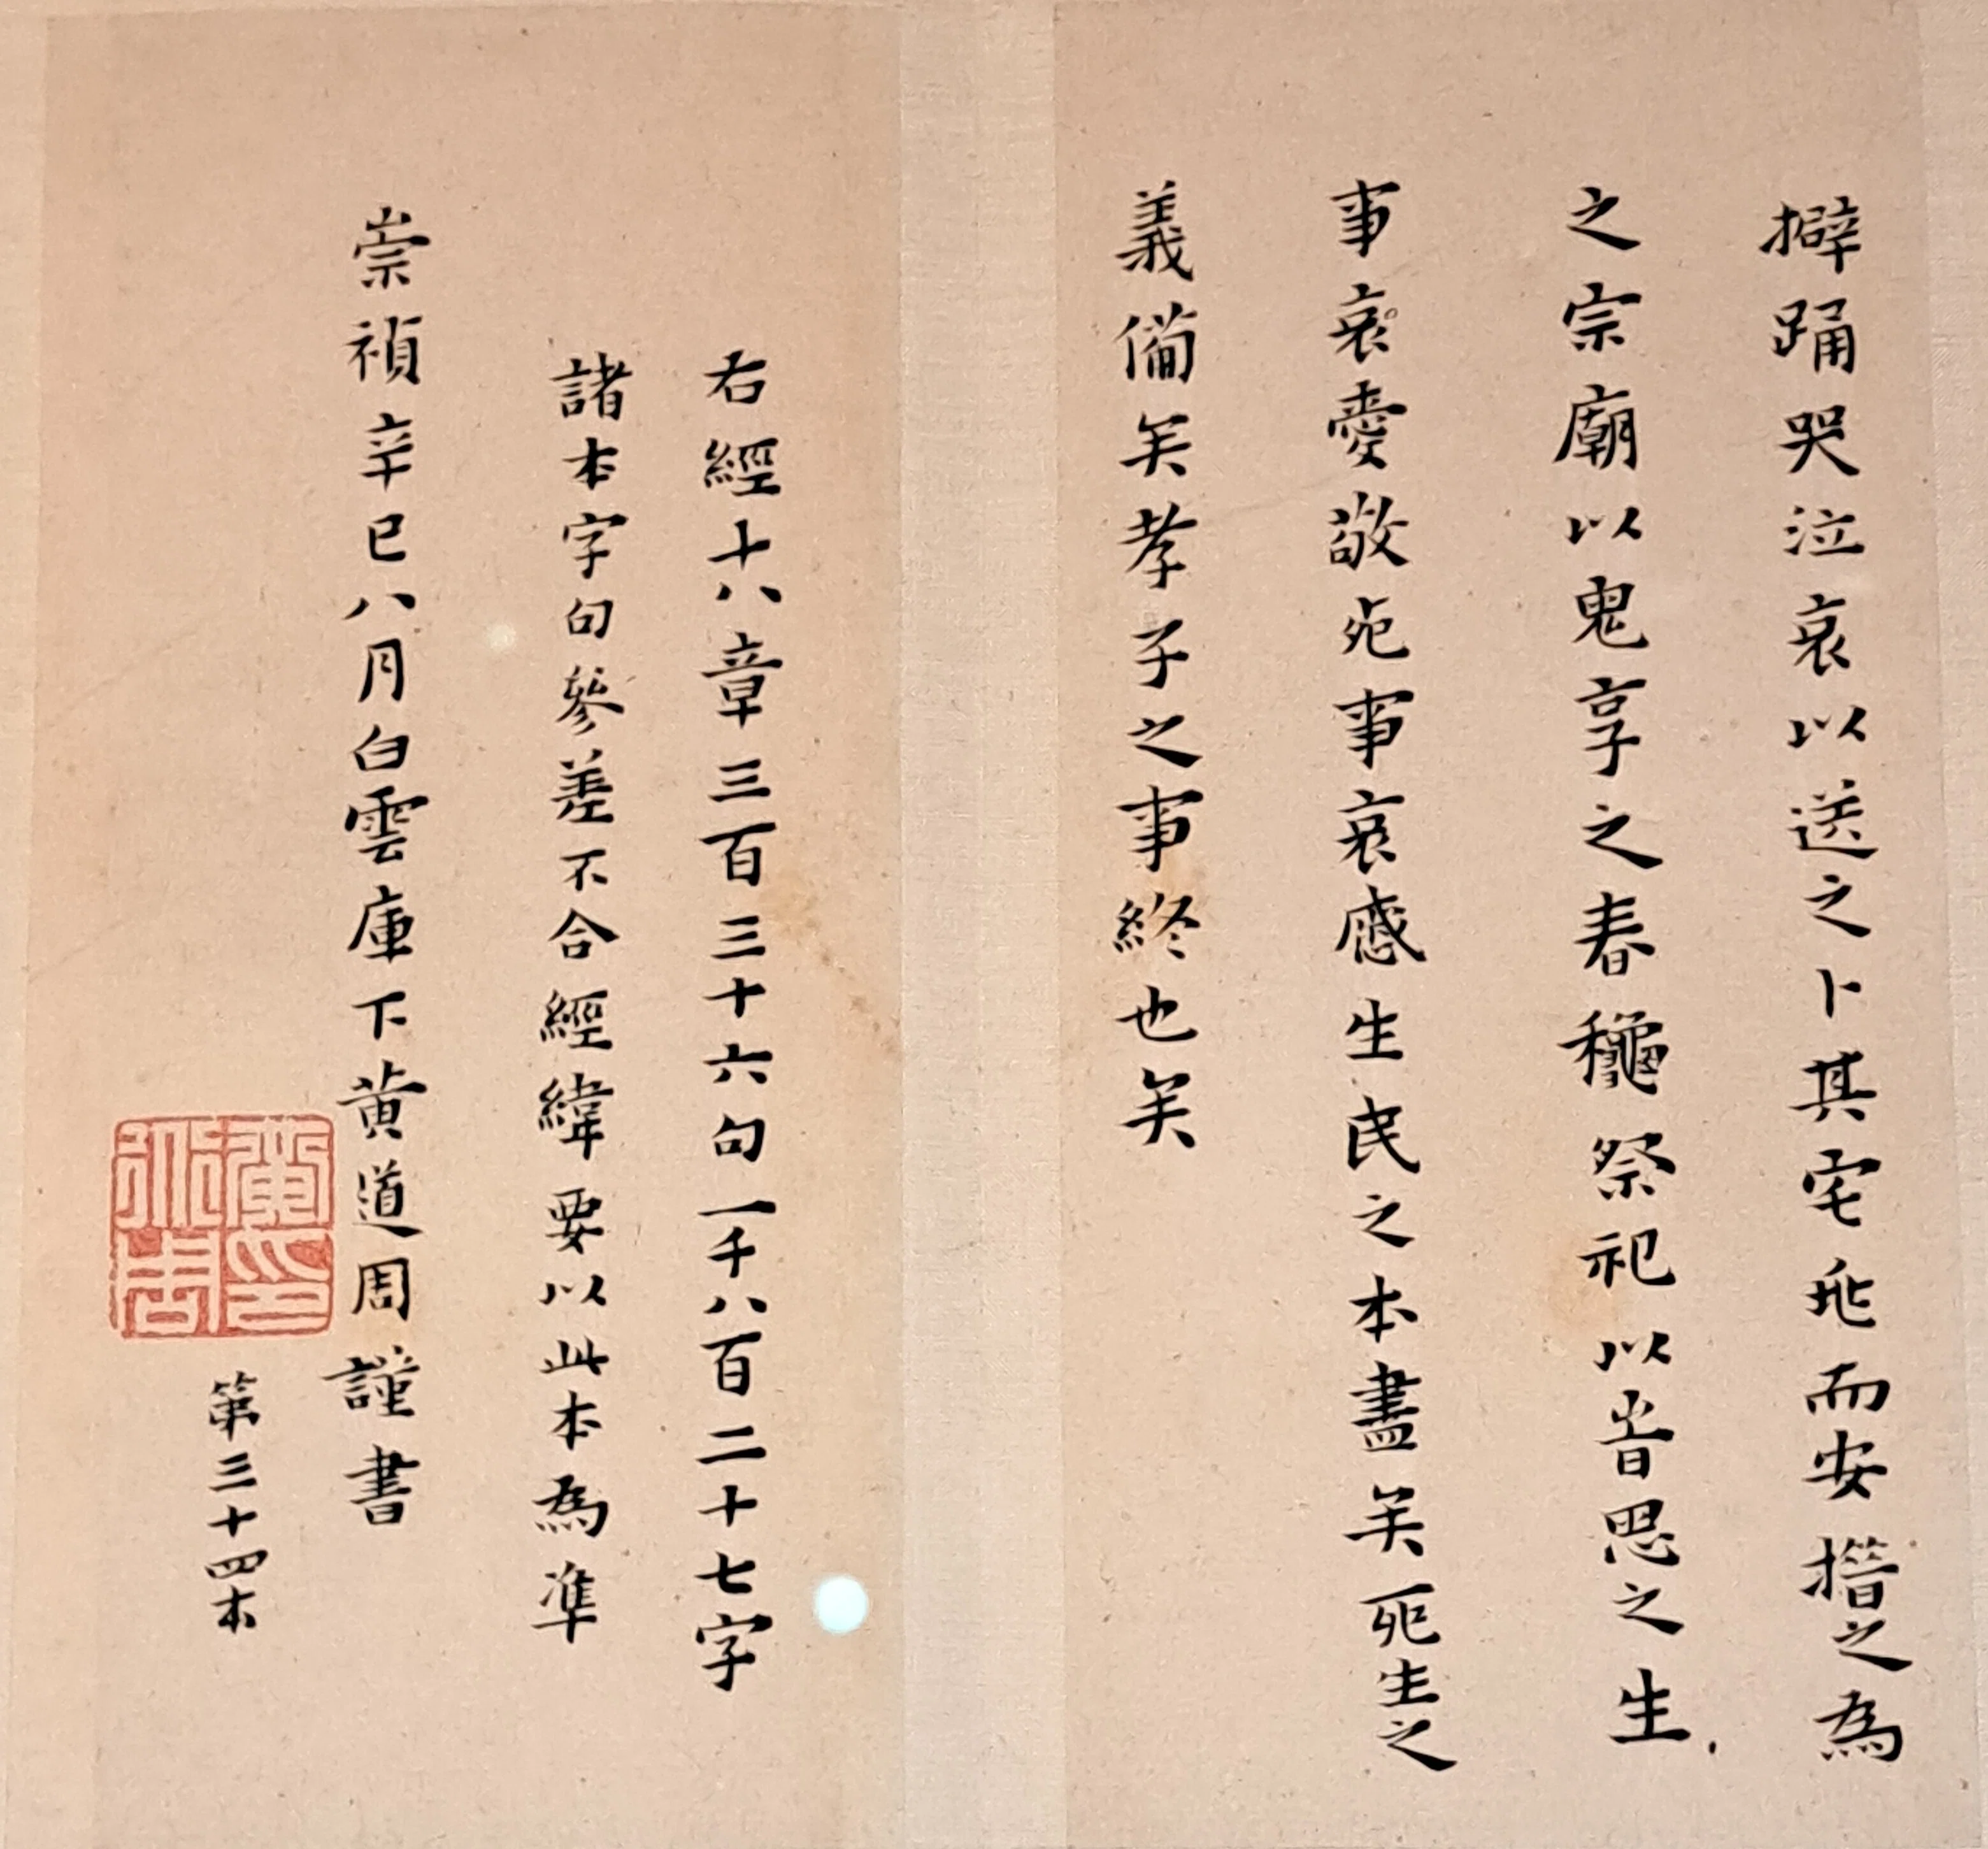 擗踊哭泣哀以送之卜其宅兆而安措之為
之宗廟以鬼享之春龝祭祀以旹思之生
事哀愛敬死事哀慼生民之本盡矣死生之
義備矣孝子之事終也矣
右經十八章三百三十六句一千八百二十七字
諸本字句參差不合經緯要以此本為準
崇禎辛巳八月白雲庫下黃道周謹書
第三十四本
黃道周印